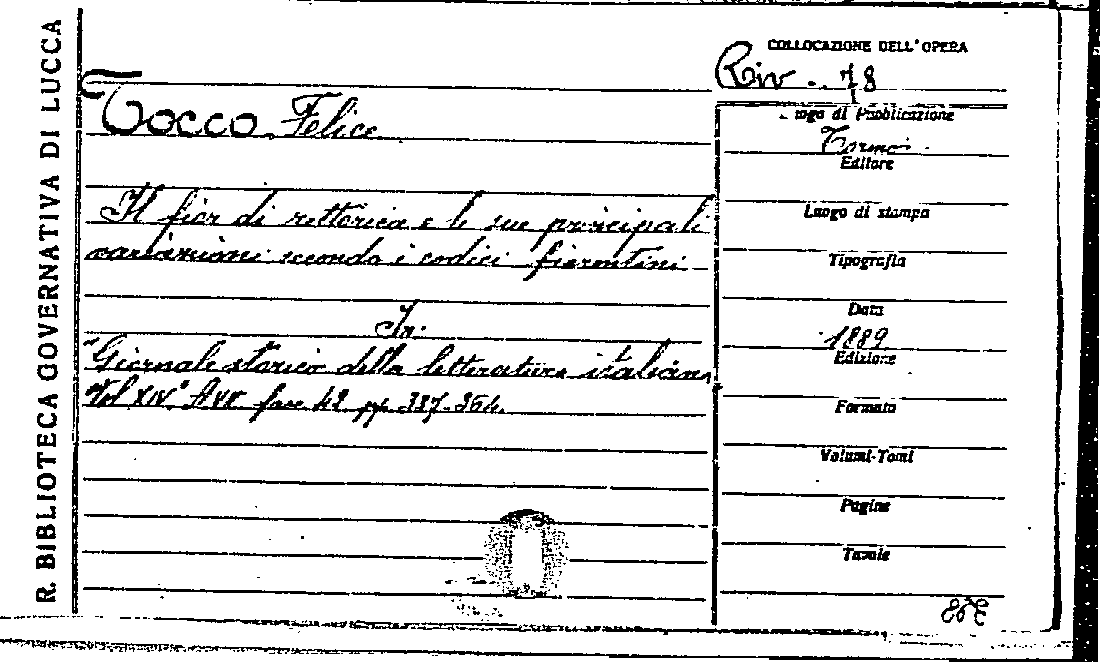 R. BIBLIOTECA GOVERNATIVA DI LUCCA
COLLOCAZIONE DELL'OPERA
Riv. 78
Tocco Felice
Il fior di rettorica e le sue principali
variazioni secondo i codici fiorentini
In:
"Giornale storico della letteratura italiana
Vol XIV° fasc 42 pp. 337-364.
Luogo di Pubblicazione
Torino
Editore
Luogo di stampa
Tipografia
Data
1889
Edizione
Formato
Volumi-Tomi
Pagine
Tavole